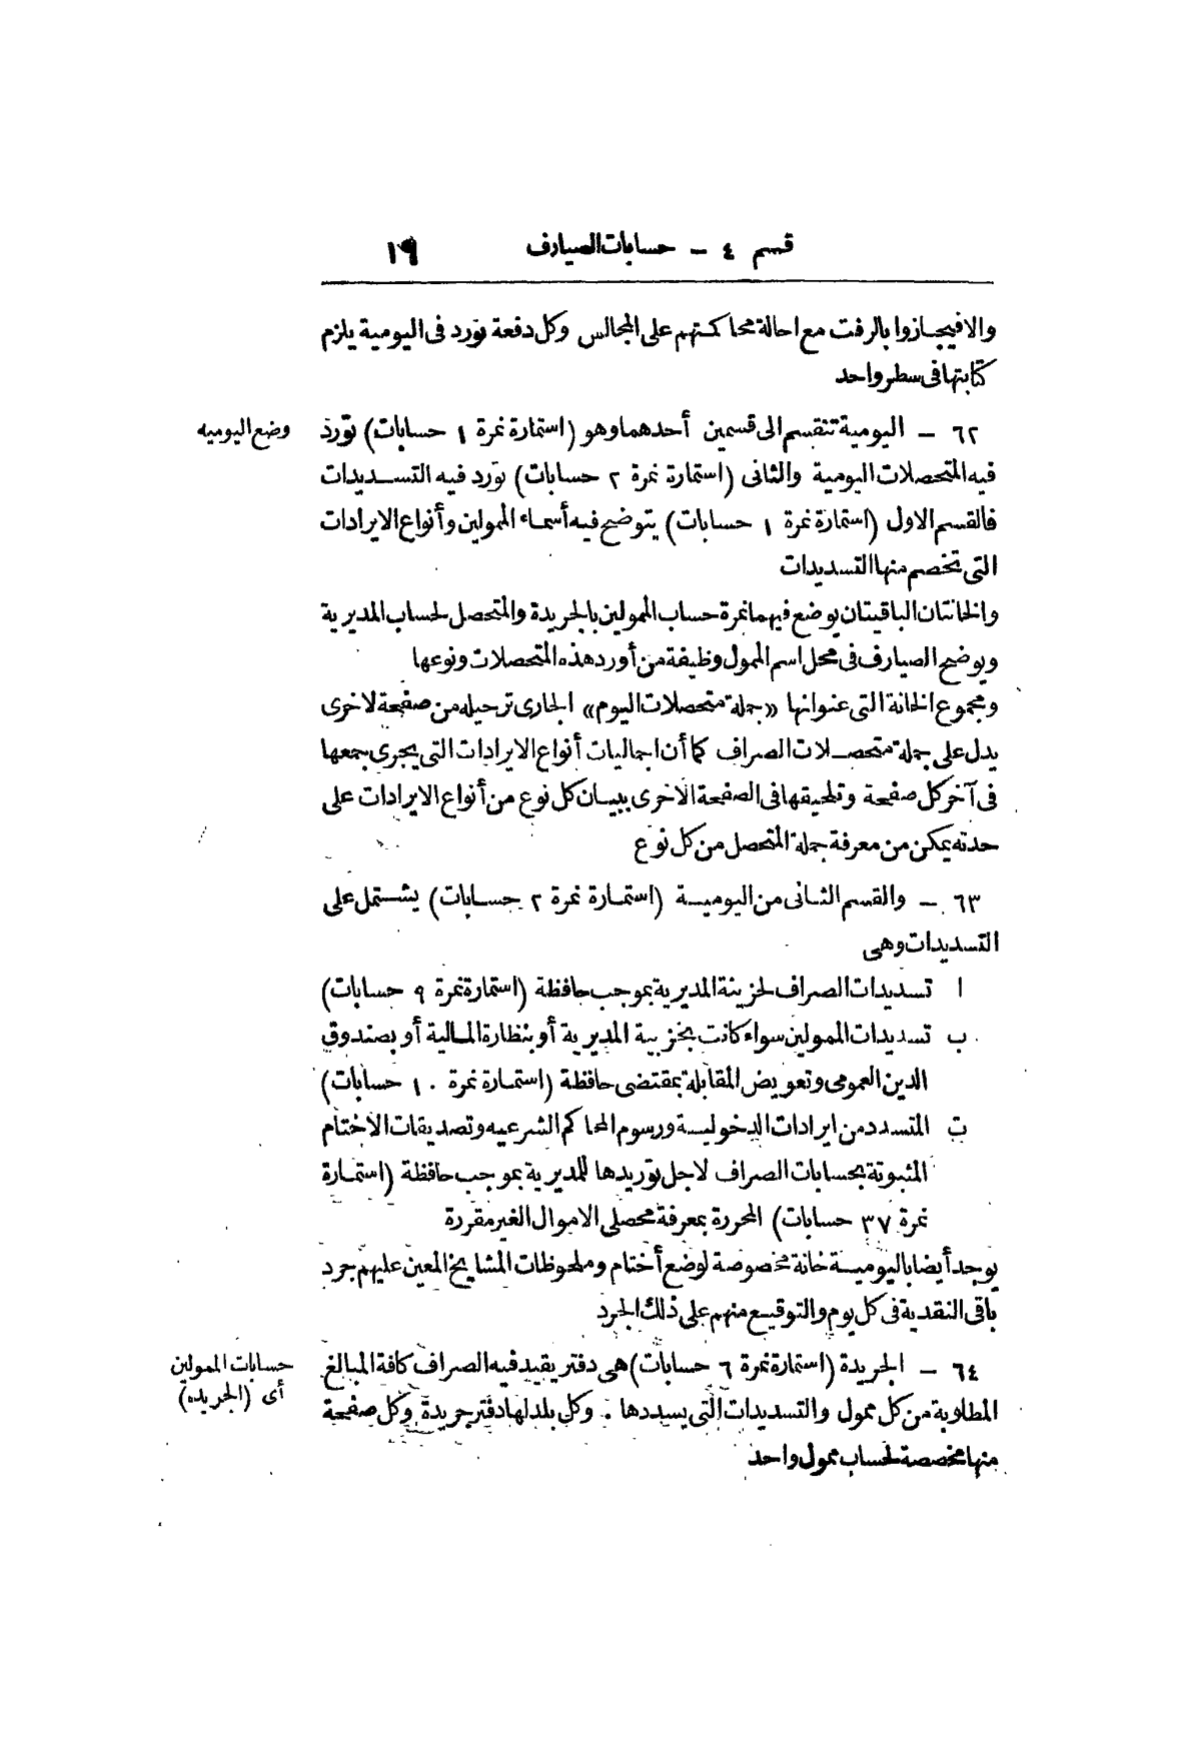 قسم ٤ – حسابات الصيارف ١٩
والا فيجازوا بالرفت مع احالة محاكمتهم على المجالس وكل دفعة تورد فى اليومية يلزم
كتابتها فى سطر واحد
٦٢ – اليومية تنقسم الى قسمين أحدهما وهو (استمارة نمرة ١ حسابات) تورد
وضع اليوميه
فيه المتحصلات اليومية والثانى (استمارة نمرة ٢ حسابات) تورد فيه التسديدات
فالقسم الاول (استمارة نمرة ١ حسابات) يتوضح فيه أسماء الممولين وأنواع الايرادات
التى تخصم منها التسديدات
والخانتان الباقيتان يوضع فيهما نمرة حساب الممولين بالجريدة والمتحصل لحساب المديرية
ويوضح الصيارف فى محل اسم الممول وظيفة من أورد هذه المتحصلات ونوعها
ومجموع الخانة التى عنوانها «جملة متحصلات اليوم» الجارى ترحيله من صفحة لاخرى
يدل على جملة متحصلات الصراف كما أن اجماليات أنواع الايرادات التى يجرى جمعها
فى آخر كل صفحة وتلحيقها فى الصفحة الاخرى ببيان كل نوع من أنواع الايرادات على
حدته يمكن من معرفة جملة المتحصل من كل نوع
٦٣ – والقسم الثانى من اليومية (استمارة نمرة ٢ حسابات) يشتمل على
التسديدات وهى
ا تسديدات الصراف لخزينة المديرية بموجب حافظة (استمارة نمرة ٩ حسابات)
ب تسديدات الممولين سواء كانت بخزينة المديرية أو بنظارة المالية أو بصندوق
الدين العمومى وتعويض المقابلة بمقتضى حافظة (استمارة نمرة ١٠ حسابات)
ت المتسدد من ايرادات الدخولية ورسوم المحاكم الشرعيه وتصديقات الاختام
المثبوتة بحسابات الصراف لاجل توريدها للمديرية بموجب حافظة (استمارة
نمرة ٣٧ حسابات) المحررة بمعرفة محصلى الاموال الغير مقررة
يوجد أيضا باليومية خانة مخصوصة لوضع أختام وملحوظات المشايخ المعين عليهم جرد
باقى النقدية فى كل يوم والتوقيع منهم على ذلك الجرد
٦٤ – الجريدة (استمارة نمرة ٦ حسابات) هى دفتر يقيد فيه الصراف كافة المبالغ
حسابات الممولين
أى (الجريده)
المطلوبة من كل ممول والتسديدات التى يسددها . وكل بلد لها دفتر جريدة وكل صفحة
منها مخصصة لحساب ممول واحد